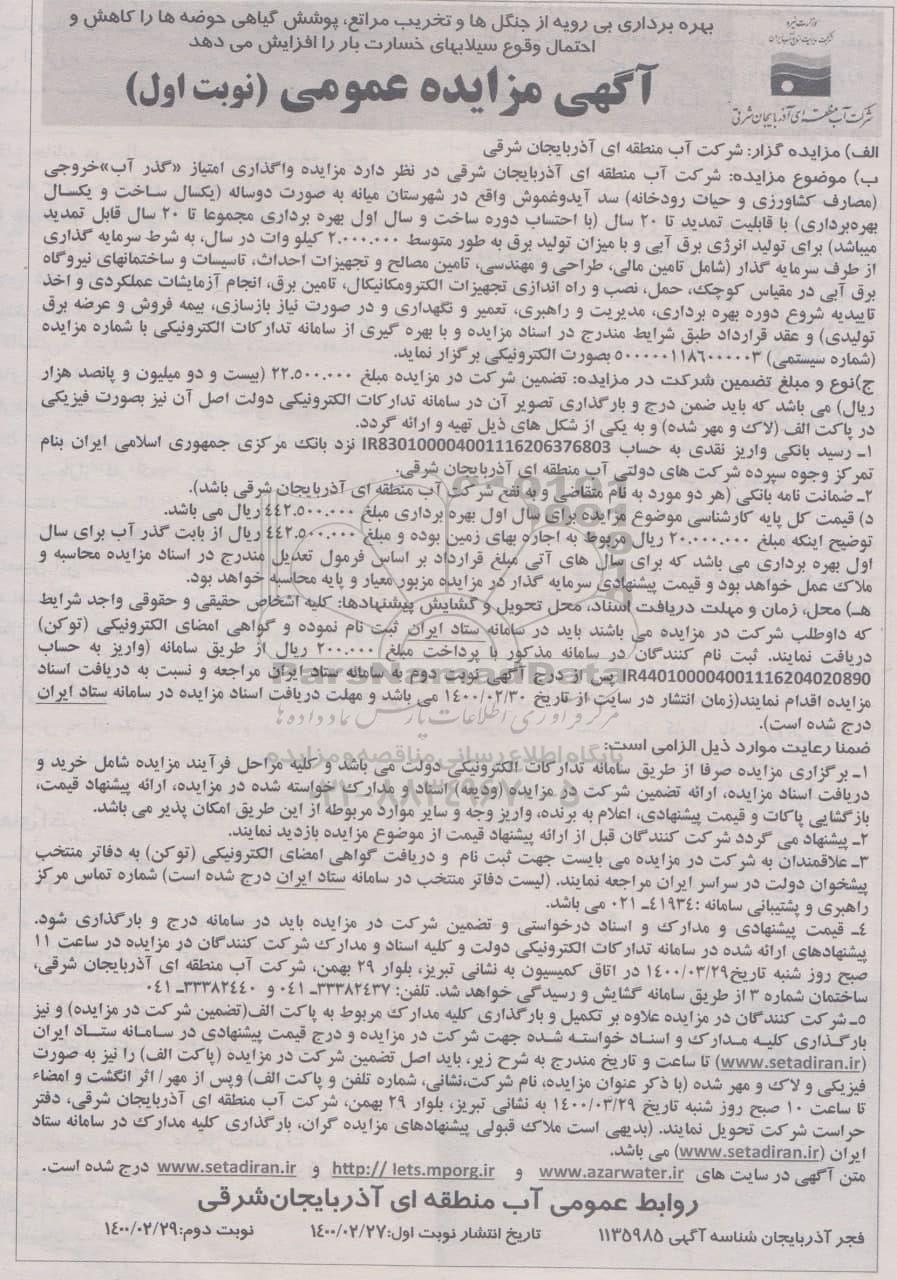 بهره برداری بی رویه از جنگل ها و تخریب مراتع، پوشش گیاهی حوضه ها را کاهش و
احتمال وقوع سیلابهای خسارت بار را افزایش می دهد
آگهی مزایده عمومی (نوبت اول)
وزارت نیرو
شرکت مدیریت منابع آب ایران
شرکت آب منطقه ای آذربایجان شرقی
الف) مزایده گزار: شرکت آب منطقه ای آذربایجان شرقی
ب) موضوع مزایده: شرکت آب منطقه ای آذربایجان شرقی در نظر دارد مزایده واگذاری امتیاز «گذر آب»خروجی
(مصارف کشاورزی و حیات رودخانه) سد آیدوغموش واقع در شهرستان میانه به صورت دوساله (یکسال ساخت و یکسال
بهره‌برداری) با قابلیت تمدید تا ۲۰ سال (با احتساب دوره ساخت و سال اول بهره برداری مجموعا تا ۲۰ سال قابل تمدید
میباشد) برای تولید انرژی برق آبی و با میزان تولید برق به طور متوسط ۲.۰۰۰.۰۰۰ کیلو وات در سال، به شرط سرمایه گذاری
از طرف سرمایه گذار (شامل تامین مالی، طراحی و مهندسی، تامین مصالح و تجهیزات احداث، تاسیسات و ساختمانهای نیروگاه
برق آبی در مقیاس کوچک، حمل، نصب و راه اندازی تجهیزات الکترومکانیکال، تامین برق، انجام آزمایشات عملکردی و اخذ
تاییدیه شروع دوره بهره برداری، مدیریت و راهبری، تعمیر و نگهداری و در صورت نیاز بازسازی، بیمه فروش و عرضه برق
تولیدی) و عقد قرارداد طبق شرایط مندرج در اسناد مزایده و با بهره گیری از سامانه تدارکات الکترونیکی با شماره مزایده
(شماره سیستمی) ۵۰۰۰۰۰۱۱۸۶۰۰۰۰۰۳ بصورت الکترونیکی برگزار نماید.
ج)نوع و مبلغ تضمین شرکت در مزایده: تضمین شرکت در مزایده مبلغ ۲۲.۵۰۰.۰۰۰ (بیست و دو میلیون و پانصد هزار
ریال) می باشد که باید ضمن درج و بارگذاری تصویر آن در سامانه تدارکات الکترونیکی دولت اصل آن نیز بصورت فیزیکی
در پاکت الف (لاک و مهر شده) و به یکی از شکل های ذیل تهیه و ارائه گردد.
۱ـ رسید بانکی واریز نقدی به حساب IR830100004001116206376803 نزد بانک مرکزی جمهوری اسلامی ایران بنام
تمرکز وجوه سپرده شرکت های دولتی آب منطقه ای آذربایجان شرقی.
۲ـ ضمانت نامه بانکی (هر دو مورد به نام متقاضی و به نفع شرکت آب منطقه ای آذربایجان شرقی باشد).
د) قیمت کل پایه کارشناسی موضوع مزایده برای سال اول بهره برداری مبلغ ۴۴۲.۵۰۰.۰۰۰ ریال می باشد.
توضیح اینکه مبلغ ۲۰.۰۰۰.۰۰۰ ریال مربوط به اجاره بهای زمین بوده و مبلغ ۴۴۲.۵۰۰.۰۰۰ ریال از بابت گذر آب برای سال
اول بهره برداری می باشد که برای سال های آتی مبلغ قرارداد بر اساس فرمول تعدیل مندرج در اسناد مزایده محاسبه و
ملاک عمل خواهد بود و قیمت پیشنهادی سرمایه گذار در مزایده مزبور معیار و پایه محاسبه خواهد بود.
هـ) محل، زمان و مهلت دریافت اسناد، محل تحویل و گشایش پیشنهادها: کلیه اشخاص حقیقی و حقوقی واجد شرایط
که داوطلب شرکت در مزایده می باشند باید در سامانه ستاد ایران ثبت نام نموده و گواهی امضای الکترونیکی (توکن)
دریافت نمایند. ثبت نام کنندگان در سامانه مذکور با پرداخت مبلغ ۲۰۰.۰۰۰ ریال از طریق سامانه (واریز به حساب
IR440100004001116204020890 پس از درج آگهی نوبت دوم به سامانه ستاد ایران مراجعه و نسبت به دریافت اسناد
مزایده اقدام نمایند(زمان انتشار در سایت از تاریخ ۱۴۰۰/۰۲/۳۰ می باشد و مهلت دریافت اسناد مزایده در سامانه ستاد ایران
درج شده است).
ضمنا رعایت موارد ذیل الزامی است:
۱ـ برگزاری مزایده صرفا از طریق سامانه تدارکات الکترونیکی دولت می باشد و کلیه مراحل فرآیند مزایده شامل خرید و
دریافت اسناد مزایده، ارائه تضمین شرکت در مزایده (ودیعه) اسناد و مدارک خواسته شده در مزایده، ارائه پیشنهاد قیمت،
بازگشایی پاکات و قیمت پیشنهادی، اعلام به برنده، واریز وجه و سایر موارد مربوطه از این طریق امکان پذیر می باشد.
۲ـ پیشنهاد می گردد شرکت کنندگان قبل از ارائه پیشنهاد قیمت از موضوع مزایده بازدید نمایند.
۳ـ علاقمندان به شرکت در مزایده می بایست جهت ثبت نام و دریافت گواهی امضای الکترونیکی (توکن) به دفاتر منتخب
پیشخوان دولت در سراسر ایران مراجعه نمایند. (لیست دفاتر منتخب در سامانه ستاد ایران درج شده است) شماره تماس مرکز
راهبری و پشتیبانی سامانه :۴۱۹۳۴ـ ۰۲۱ می باشد.
۴ـ قیمت پیشنهادی و مدارک و اسناد درخواستی و تضمین شرکت در مزایده باید در سامانه درج و بارگذاری شود.
پیشنهادهای ارائه شده در سامانه تدارکات الکترونیکی دولت و کلیه اسناد و مدارک شرکت کنندگان در مزایده در ساعت ۱۱
صبح روز شنبه تاریخ۱۴۰۰/۰۳/۲۹ در اتاق کمیسیون به نشانی تبریز، بلوار ۲۹ بهمن، شرکت آب منطقه ای آذربایجان شرقی،
ساختمان شماره ۳ از طریق سامانه گشایش و رسیدگی خواهد شد. تلفن: ۳۳۳۸۲۴۳۷ـ ۰۴۱ و ۳۳۳۸۲۴۴۰ـ ۰۴۱
۵ـ شرکت کنندگان در مزایده علاوه بر تکمیل و بارگذاری کلیه مدارک مربوط به پاکت الف(تضمین شرکت در مزایده) و نیز
بارگـذاری کلیـه مـدارک و اسنـاد خواستـه شـده جهت شرکت در مزایده و درج قیمت پیشنهادی در سـامـانه ستـاد ایران
(www.setadiran.ir) تا ساعت و تاریخ مندرج به شرح زیر، باید اصل تضمین شرکت در مزایده (پاکت الف) را نیز به صورت
فیزیکی و لاک و مهر شده (با ذکر عنوان مزایده، نام شرکت،نشانی، شماره تلفن و پاکت الف) وپس از مهر/ اثر انگشت و امضاء
تا ساعت ۱۰ صبح روز شنبه تاریخ ۱۴۰۰/۰۳/۲۹ به نشانی تبریز، بلوار ۲۹ بهمن، شرکت آب منطقه ای آذربایجان شرقی، دفتر
حراست شرکت تحویل نمایند. (بدیهی است ملاک قبولی پیشنهادهای مزایده گران، بارگذاری کلیه مدارک در سامانه ستاد
ایران (www.setadiran.ir) می باشد.
متن آگهی در سایت های www.azarwater.ir و http:// iets.mporg.ir و www.setadiran.ir درج شده است.
روابط عمومی آب منطقه ای آذربایجان‌شرقی
فجر آذربایجان شناسه آگهی ۱۱۳۵۹۸۵ تاریخ انتشار نوبت اول:۱۴۰۰/۰۲/۲۷ نوبت دوم:۱۴۰۰/۰۲/۲۹
ParsNamadData
مرکز فرآوری اطلاعات پارس نماد داده ها
پایگاه اطلاع رسانی مناقصه و مزایده